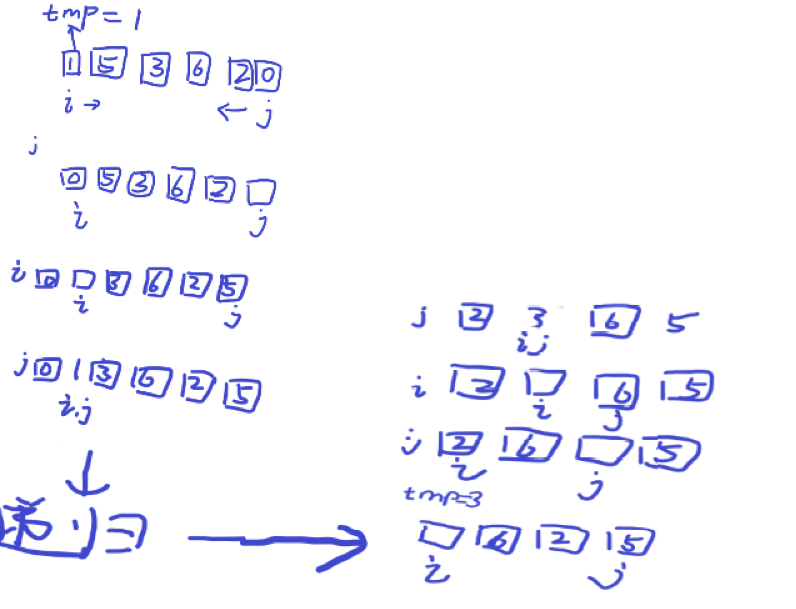 tmp = 1
1 5 3 6 2 0
i → ← j
j
0 5 3 6 2
i j
i 0 3 6 2 5
i j
j 0 1 3 6 2 5
i.j
递归
j 2 3 6 5
i j
i 2 6 5
i j
j 2 6 5
i j
tmp=3
6 2 5
i j